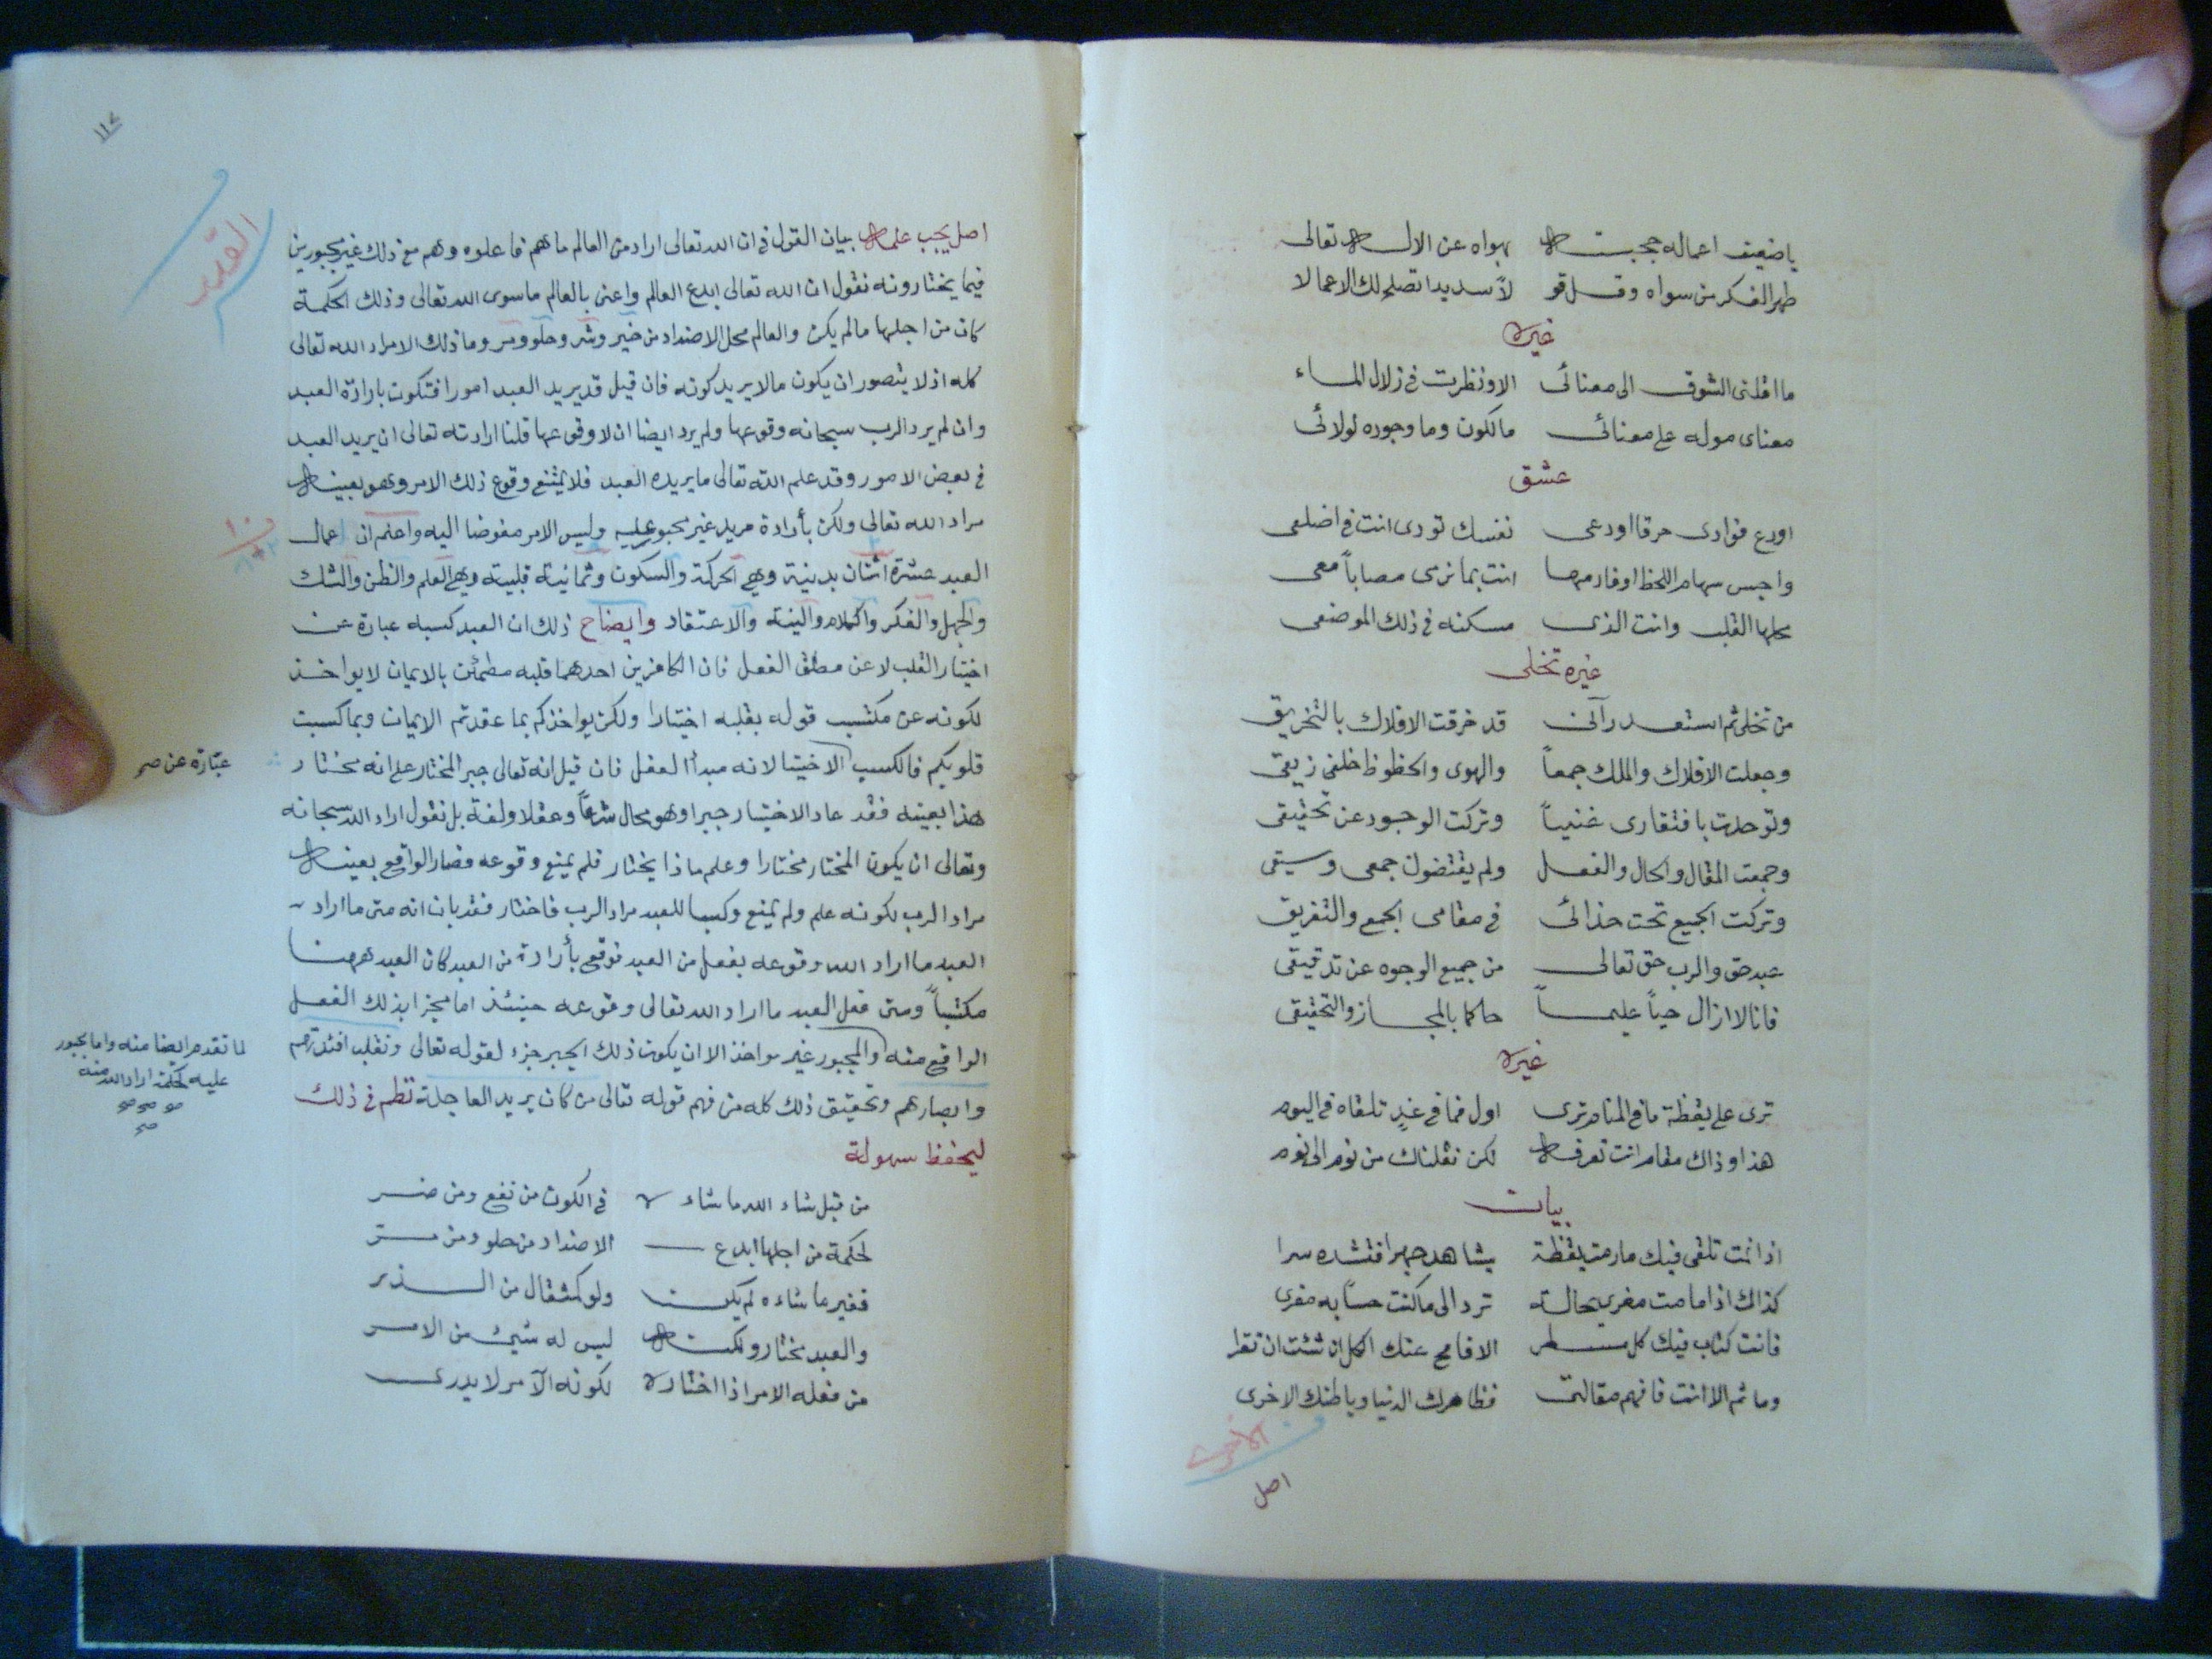 يا ضعيف اعماله حجبته بهواه عن الاله تعالى
طهر الفكر من سواه وقل قو لاً سديدا تصلح لك الاعمالا
غيره
ما اقلنى الشوق الى معنائى الا ونظرت فى زلال الماء
معناى موله على معنائى ما لكون وما وجوده لولائى
عشق
اودع فوادى حرقا اودعى نفسك تودى انت فى اضلعى
واحبس سهام اللحظ اوفارمها انت بما ترمى مصاباً معى
محلها القلب وانت الذى مسكنه فى ذلك الموضعى
غيره تخلى
من تخلى ثم استعد رآنى قد خرقت الافلاك بالتخريق
وجعلت الافلاك والملك جمعاً والهوى والحظوظ خلفى زيقى
وتوحدت بافتقارى غنيباً وتركت الوجود عن تحقيقى
وجمعت المقال والحال والفعل ولم يقتضون جمعى وسيقى
وتركت الجميع تحت حذائى فى مقامى الجمع والتفريق
عبد حق والرب حق تعالى من جميع الوجوه عن تدقيقى
فانا لا ازال حياً عليماً حاكما بالمجاز والتحقيقى
غيره
ترى على يقظة ما فى المنام ترى اول فما فى غدٍ تلقاه فى اليوم
هذا وذاك مقام انت تعرفه لكن نقلناك من نوم الى نوم
بيان
اذا نمت تلقى فيك ما رمت يقظة يشاهد جهرا فتشده سرا
كذاك اذا ما مت مغرى بحالة ترد الى ما كنت حساً به مغرى
فانت كتاب فيك كل مسطر الا فامح عنك الكل ان شئت ان تقرا
وما ثم الا انت فافهم مقالتى فظاهرك الدنيا وباطنك الاخرى
الاخرى
اصل
١١٧
اصل يجب علمه بيان القول فى ان الله تعالى اراد من العالم ما هم فاعلوه وهم مع ذلك غير مجبورين
فيما يختارونه نقول ان الله تعالى ابدع العالم واعنى بالعالم ما سوى الله تعالى وذلك لحكمة
كان من اجلها ما لم يكن والعالم محل الاضداد من خير وشر وحلو ومر وما ذلك الا مراد الله تعالى
كله اذ لا يتصور ان يكون ما لا يريد كونه فان قيل قد يريد العبد امورا فتكون بارادة العبد
وان لم يرد الرب سبحانه وقوعها ولم يرد ايضا ان لا وقوعها قلنا ارادته تعالى ان يريد العبد
فى بعض الامور وقد علم الله تعالى ما يريده العبد فلا يمتنع وقوع ذلك الامر وهو بعينه
مراد الله تعالى ولكن بأرادة مريد غير مجبور عليه وليس الامر مفوضا اليه واعلم ان اعمال
العبد عشرة اثنان بدنية وهى الحركة والسكون وثمانية قلبية وهى العلم والظن والشك
والجهل والفكر والكلام والنية والاعتقاد وايضاح ذلك ان العبد كسبه عبارة عن
اختيار القلب لا عن مطلق الفعل فان الكافرين احدهما قلبه مطمئن بالايمان لا يواخذ
لكونه عن مكتسب قوله بقلبه اختيارا ولكن يواخذكم بما عقدتم الايمان وبما كسبت
قلوبكم فالكسب الاختيا لانه مبدأ الفعل فان قيل انه تعالى جبر المختار على انه مختار
عبارة عن صح
هذا بعينه فقد عاد الاختيار جبرا وهو محال شرعاً وعقلا ولغة بل نقول اراد الله سبحانه
وتعالى ان يكون المختار مختارا وعلم ماذا يختار فلم يمنع وقوعه فصار الواقع بعينه
مراد الرب لكونه علم ولم يمنع وكسبا للعبد مراد الرب فاختار فقد بان انه متى ما اراد
العبد ما اراد الله وقوعه بفعل من العبد فوقع بأرادة من العبد كان العبد ههنا
مكتسباً ومتى فعل العبد ما اراد الله تعالى وقوعه حينئذ اما مجزا بذلك الفعل
الواقع منه والمجبور غير مواخذ الا ان يكون ذلك الجبر جزء لقوله تعالى ونقلب افئدتهم
لما تقدم ايضا منه واما مجبور
عليه لحكمة ارادالله منه
صح صح صح
صح
وابصارهم وتحقيق ذلك كله من فهم قوله تعالى من كان يريد العاجلة نظم فى ذلك
ليحفظ سهولة
من قبل شاء الله ما شاءه فى الكون من نفع ومن ضر
لحكمة من اجلها ابدع الاضداد من حلو ومن مر
فغير ما شاءه لم يكن ولو كمثقال من الذر
والعبد مختار ولكنه ليس له شيئ من الامر
من فعله الامر اذا اختاره لكونه الآمر لا يدرى